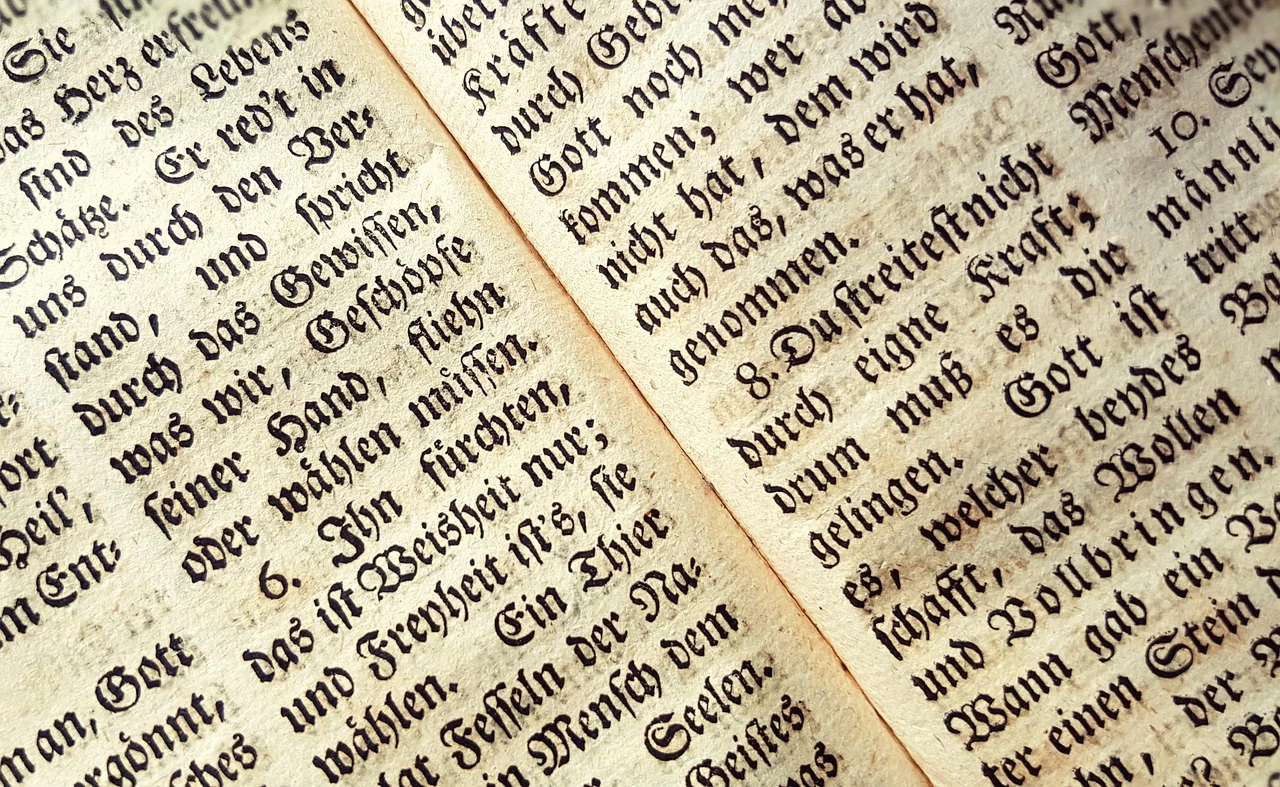 Heil',
Ent⸗
man, Gott
Sie
das Herz erfreun.
ſind des Lebens
Schätze. Er red't in
uns durch den Ver⸗
ſtand, und ſpricht
durch das Gewiſſen,
was wir, Geſchöpfe
ſeiner Hand, fliehn
oder wählen müſſen.
6. Ihn fürchten,
das iſt Weisheit nur;
und Freyheit iſt's, ſie
wählen. Ein Thier
Feſſeln der Na⸗
Menſch dem
Seelen.
Geiſtes
Kräfte
durch
Gott noch
kommen; wer
nicht hat, dem wird
auch das, was er hat,
genommen.
8. Du ſtreiteſt nicht
durch eigne Kraft;
drum muß es dir
gelingen. Gott iſt
es, welcher beydes
ſchafft, das Wollen
und Vollbringen.
Wann gab ein
einen Stein
der
Gott,
10.
tritt